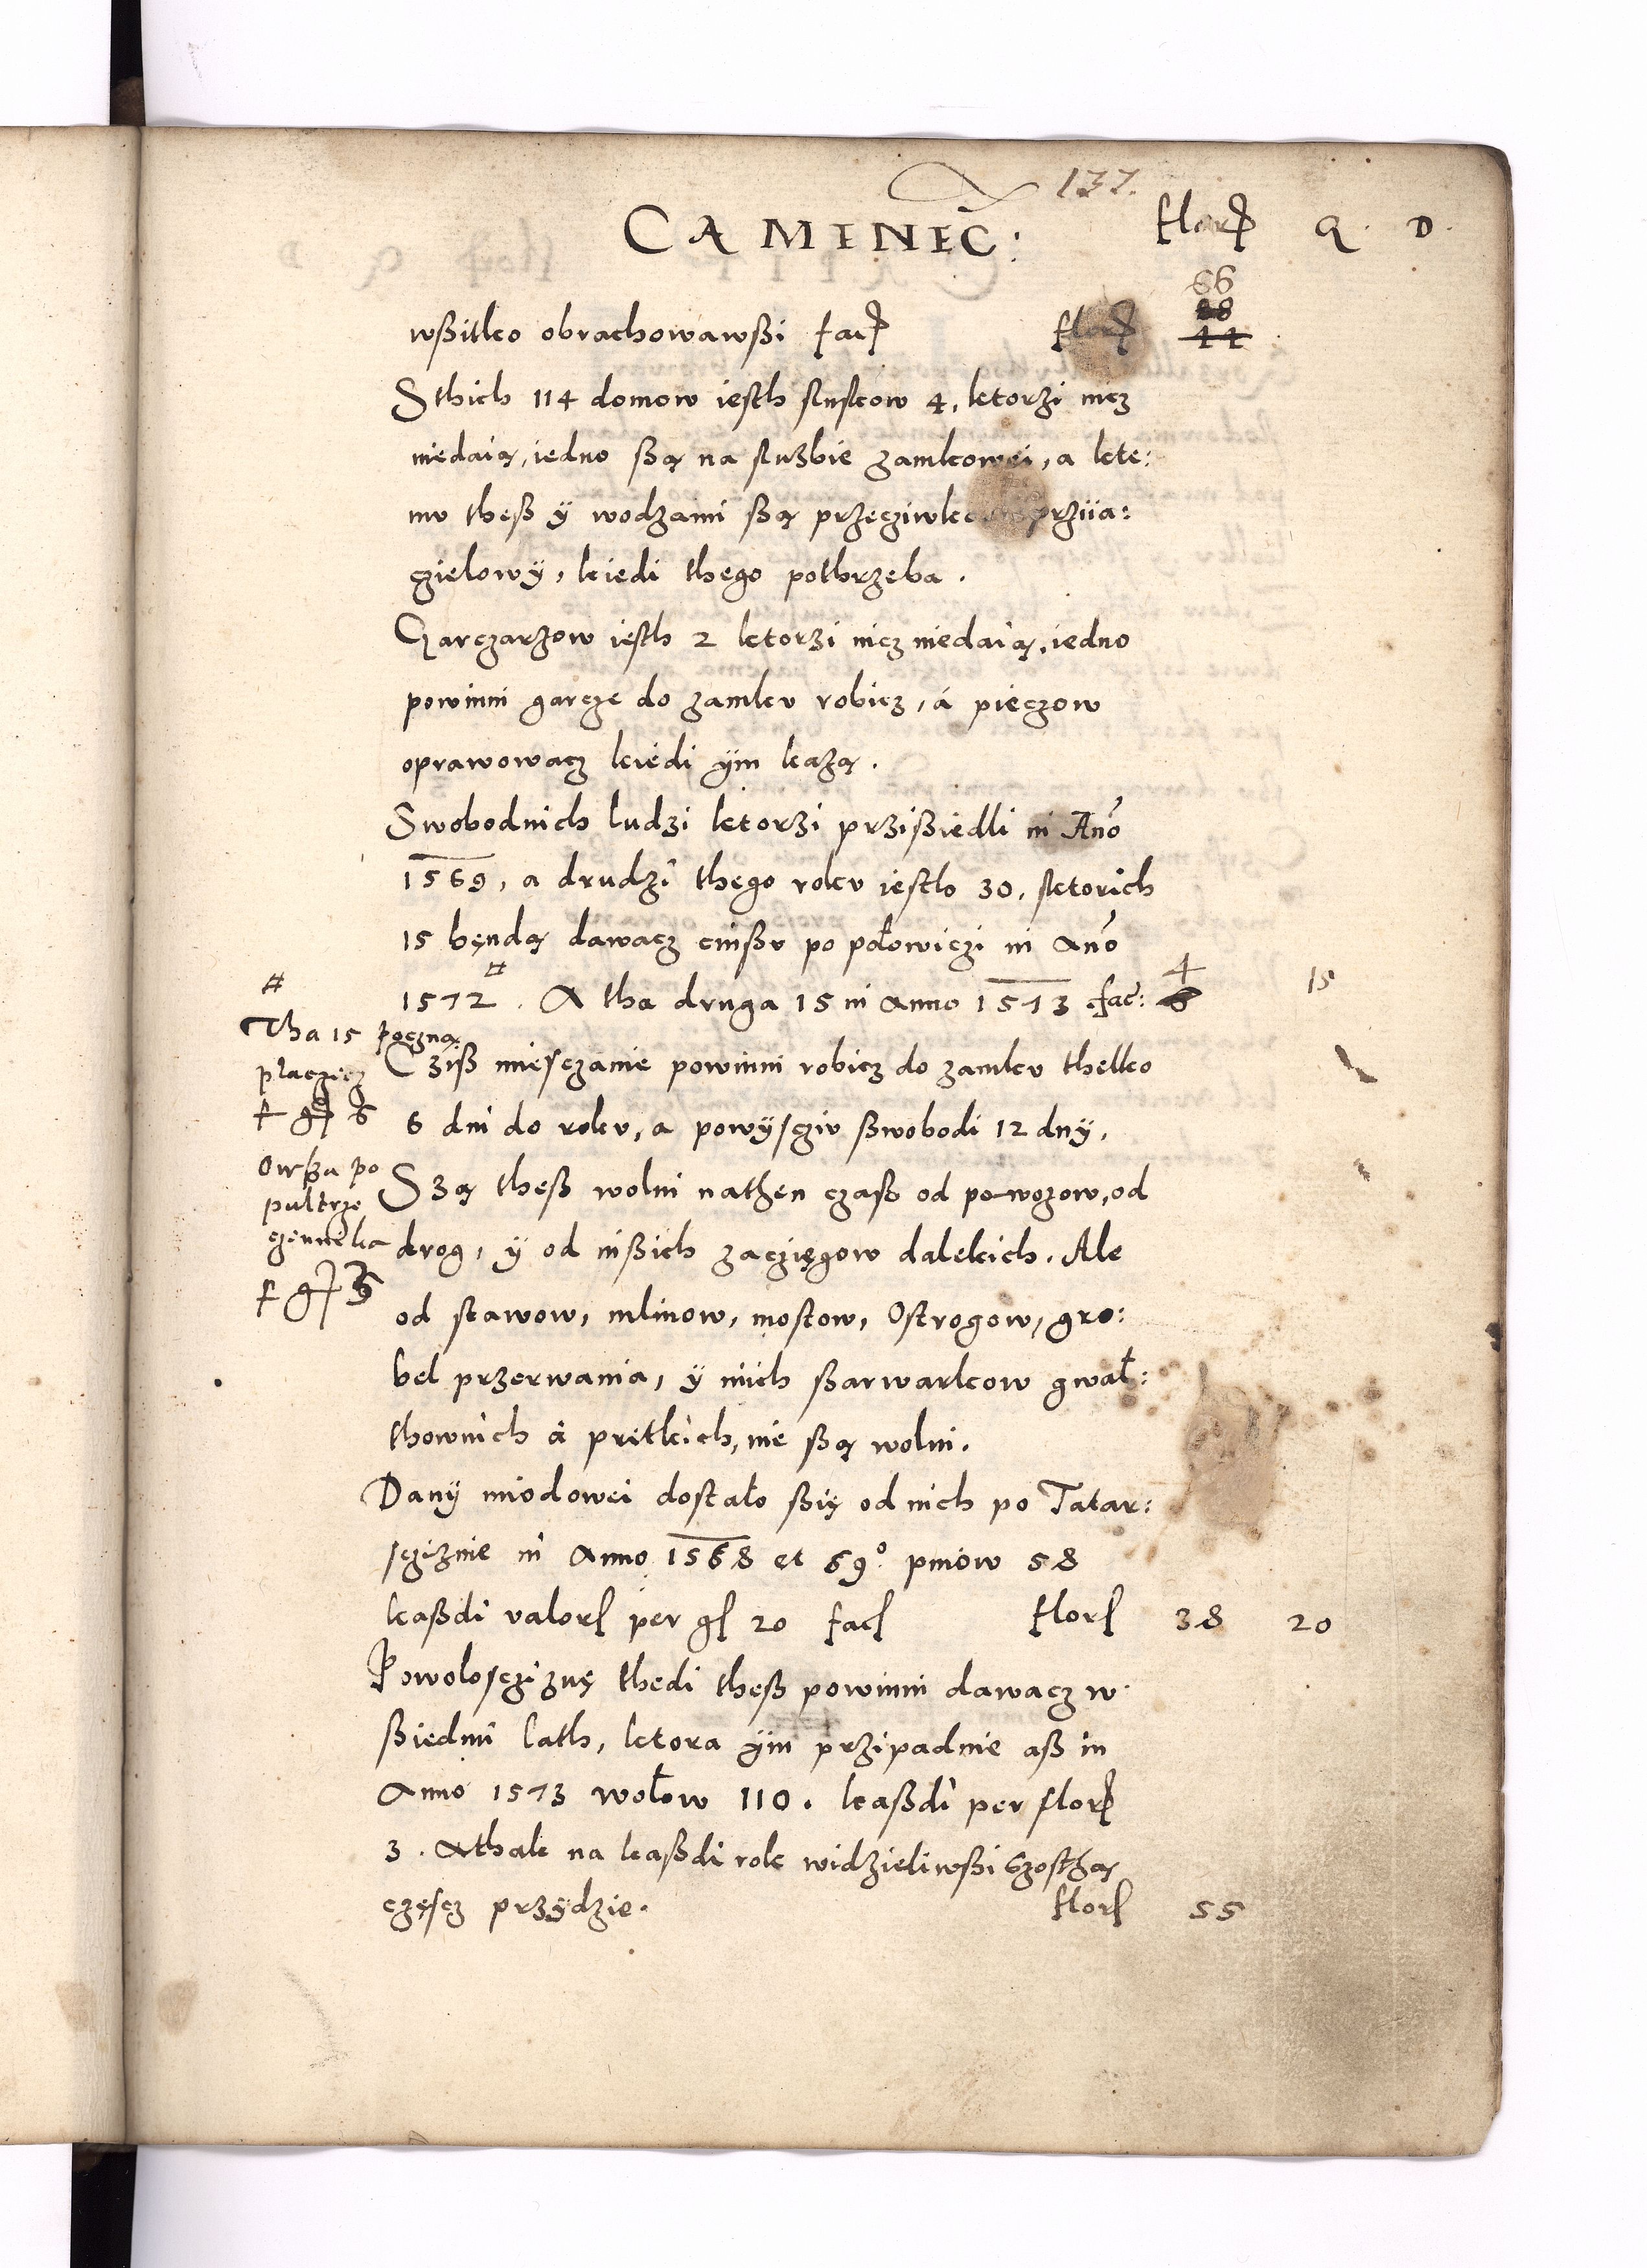 137.
CAMINEC: Flor Q. D.
66
88
44
wßitko obrachowawßi fac Flor
Sthich 114 domow iesth sluskow 4, ktorzi nicz
niedaią, iedno ßą na służbie zamkowei, a kte:
mv theß ÿ wodzami ßą przeciwko nieprziia:
czielowÿ, kiedi thego pothrzeba.
Garczarzow iesth 2 ktorzi nicz niedaią, iedno
powinni garcze do zamkv robicz, á pieczow
oprawowacz kiedi ÿm każą.
Swobodnich ludzi ktorzi przißiedli in Ano
1569, a drudzi thego rokv iesth 30, sktorich
15 będą dawacz cinßv po połowiczi in Ano
1572 #. A tha druga 15 in Anno 1573 fac: 4 15
#
Tha 15 poczną
płaczicz
f g 6
Owsza po
pułtrze
czinnika
f g 5
Cziß miesczanie powinni robicz do zamkv thelko
6 dni do rokv, a powÿsciv ßwobodi 12 dnÿ,
Szą theß wolni nathen czaß od powozow, od
drog, ÿ od inßich zacięgow dalekich. Ale
od stawow, mlinow, mostow, Ostrogow, gro:
bel przerwania, ÿ inich ßarwarkow gwał:
thownich á pritkich, nie ßą wolni.
Danÿ miodowei dostało ßię od nich po Tatar:
scziznie in Anno 1568 et 69° pniow 58
kaßdi valor per g 20 fac Flor 38 20
Powoloscziznę thedi theß powinni dawacz w
ßiedmi lath, ktora ÿm przipadnie aß in
Anno 1573 wołow 110. kaßdi per flor
3. Athak na kaßdi rok widzieliwßi Szosthą
częscz przÿdzie. Flor 55